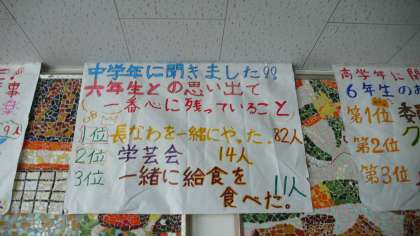 中学年に聞きました??
六年生との思い出て
一番心に残っていること
1位 長なわを一緒にやった。82人
2位 学芸会 14人
3位 一緒に給食を 11人
食べた。
高学年に
6年生の
第1位
第2位
第3位
9人